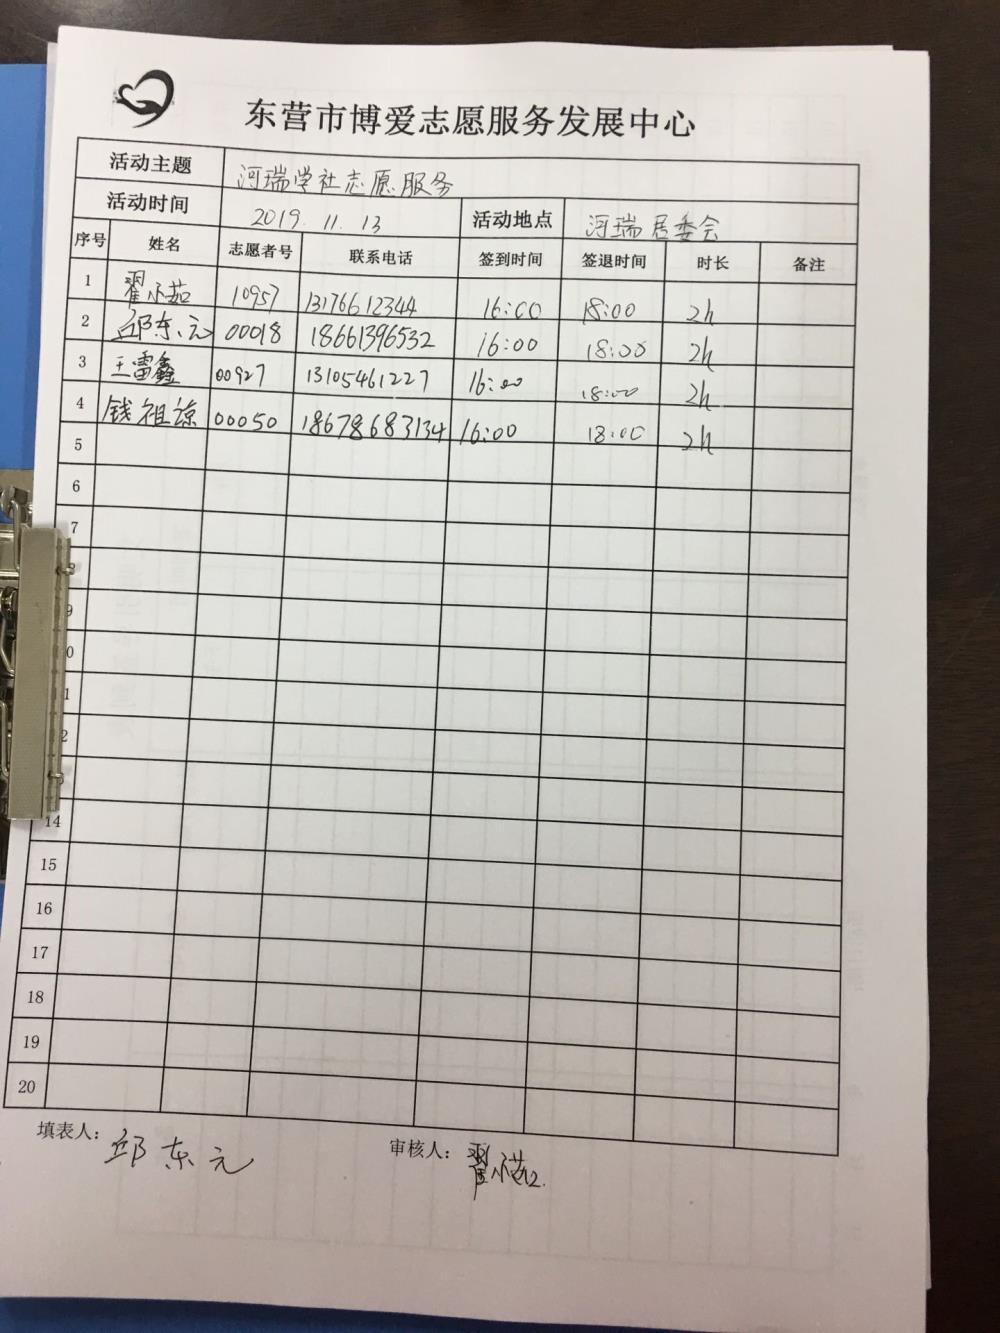 东营市博爱志愿服务发展中心
活动主题 河瑞学社志愿服务
活动时间 2019.11.13 活动地点 河瑞居委会
序号 姓名 志愿者号 联系电话 签到时间 签退时间 时长 备注
1 翟小茹 10957 13176612344 16:00 18:00 2h
2 邱东元 00018 18661396532 16:00 18:00 2h
3 王雷鑫 00927 13105461227 16:00 18:00 2h
4 钱祖谅 00050 18678683134 16:00 18:00 2h
5
6
7
8
9
0
1
2
14
15
16
17
18
19
20
填表人: 邱东元 审核人: 翟小茹